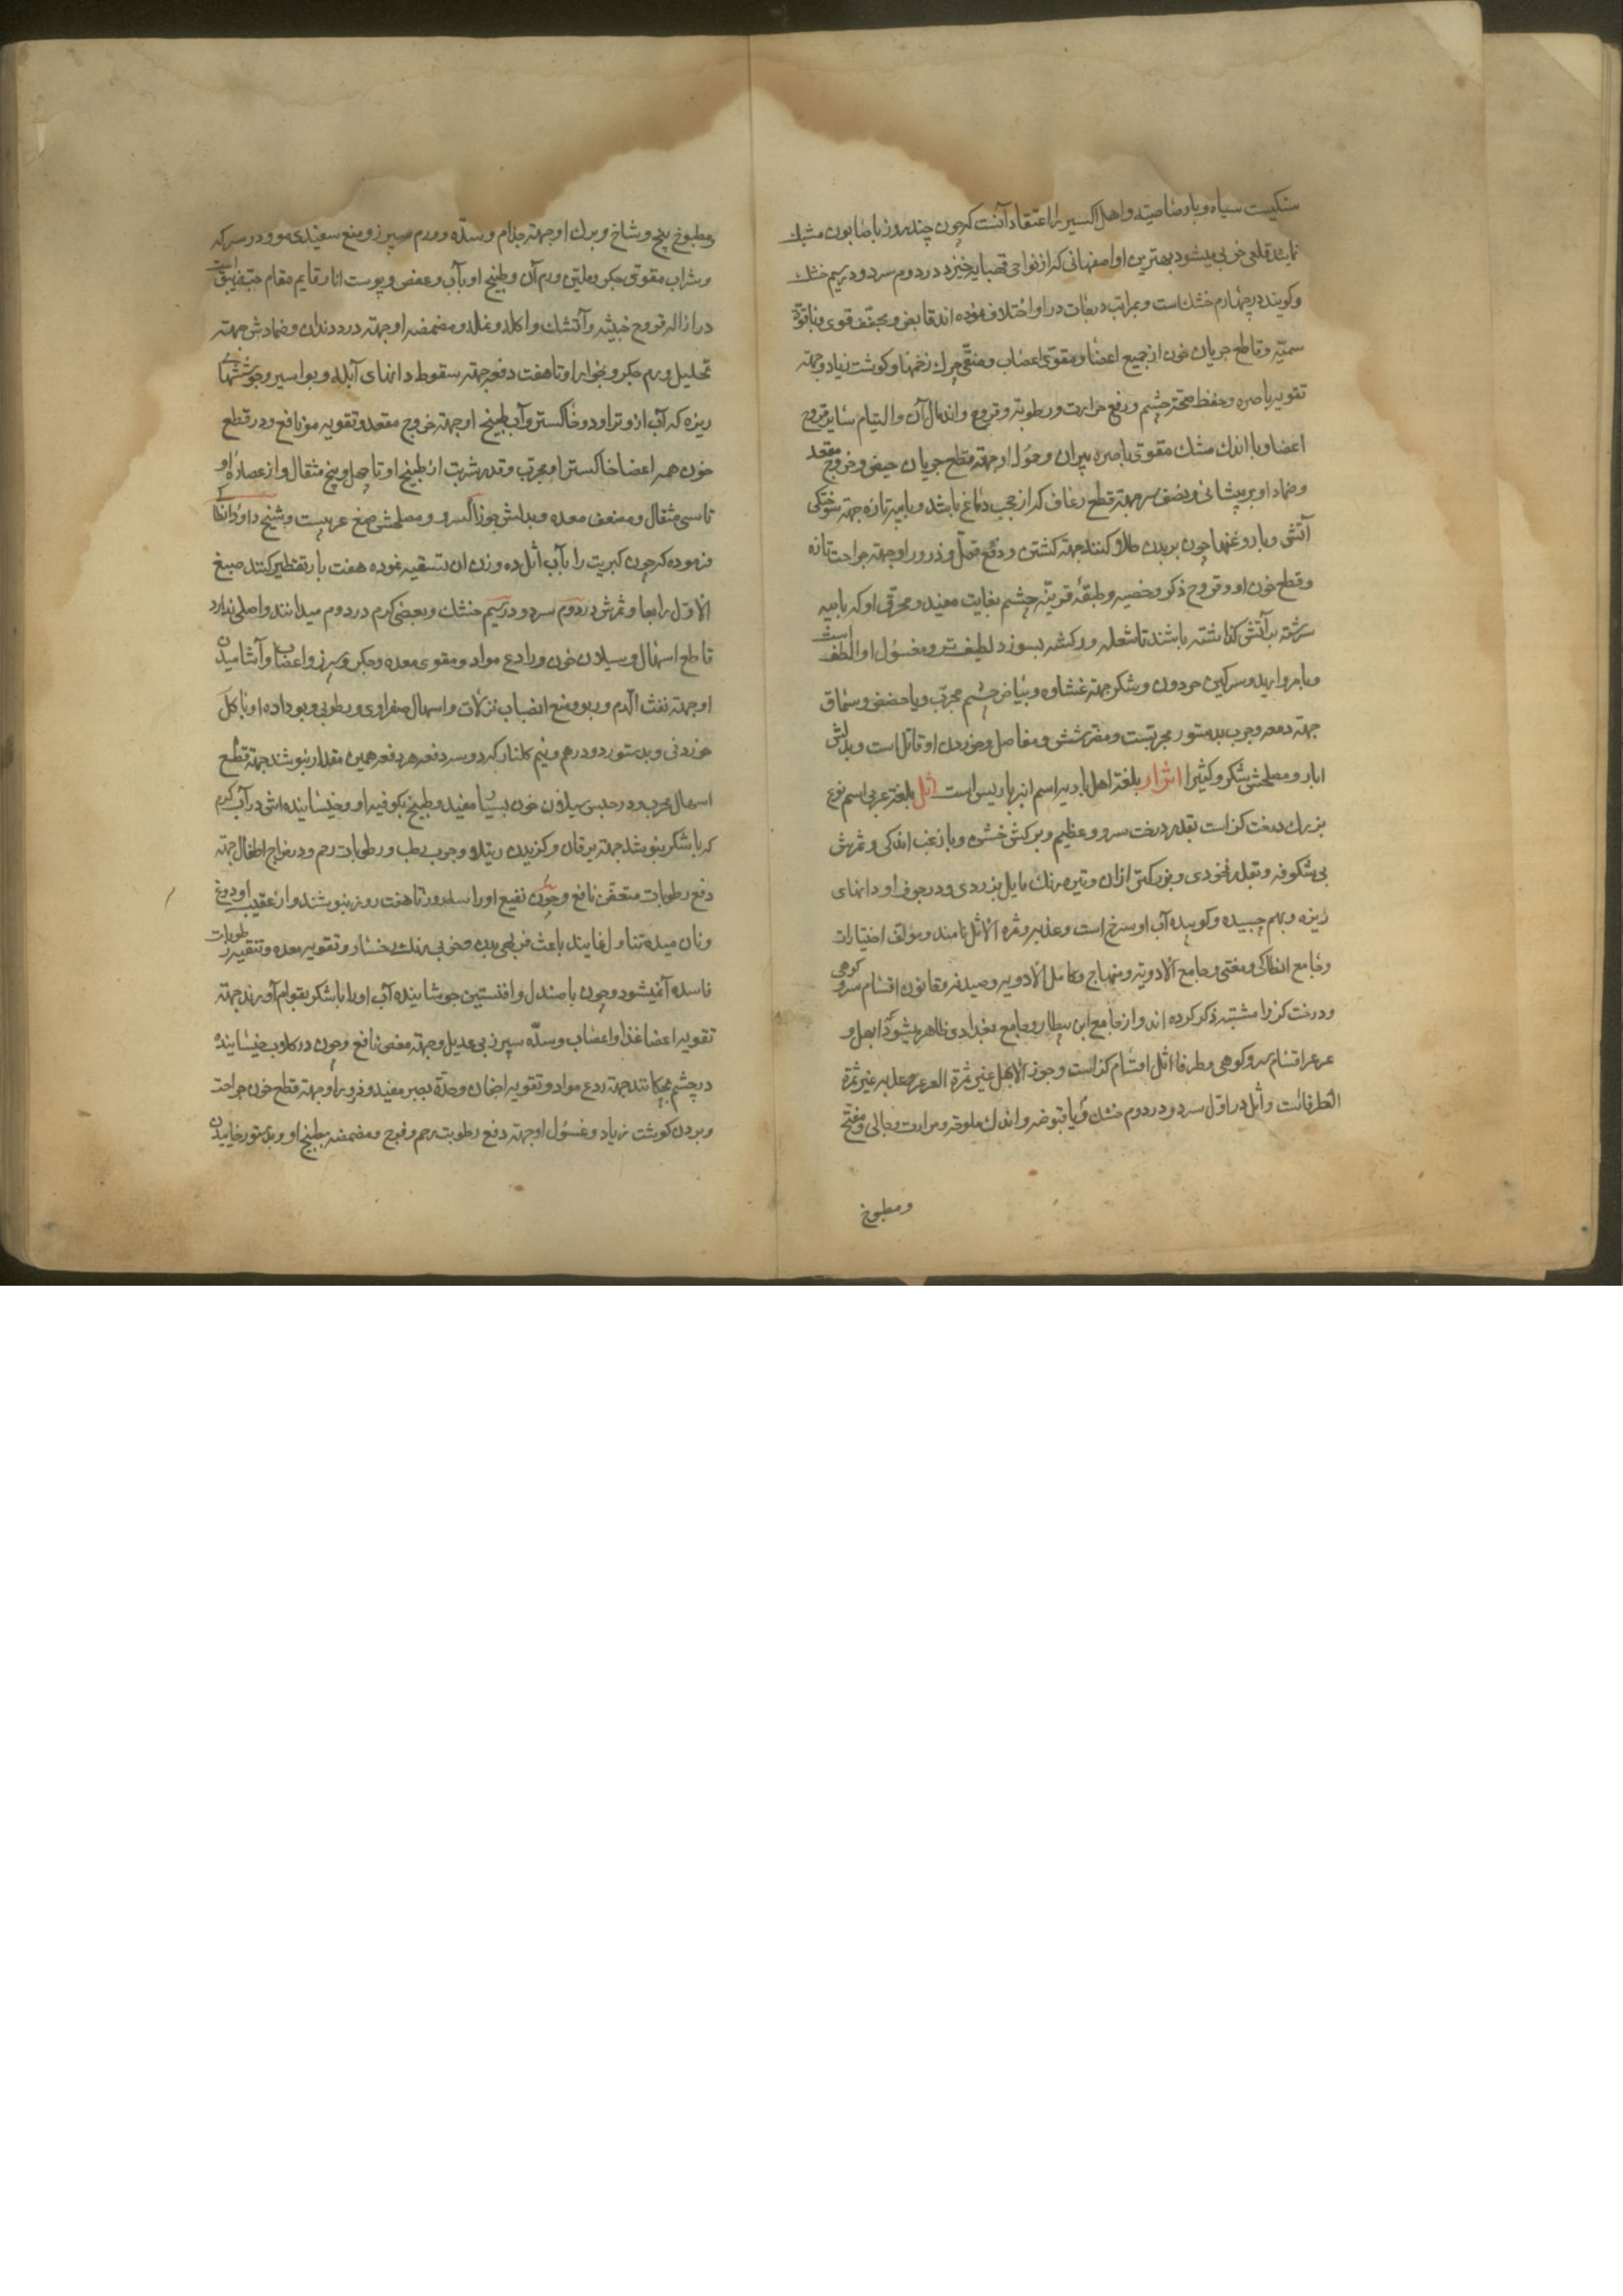 سنکیست سیاه و با رصاصیته و اهل اکسیر را اعتقاد آنست که چون چند روز با صابون مشبک
نمایند قلعی خوبی میشود بهترین او اصفهانی که از نواحی قصبایه خیزد در دوم سرد و در سیم خشک
وکویند در چهارم خشک است و بمراتب درجات در او اختلاف نموده اند قابض و مجفف قوی و با قوة
سمیه و قاطع جریان خون از جمیع اعضا و مقوی اعصاب و منقی چرک زخمها و کوشت زیاد و جهة
تقویة باصره و حفظ صحة چشم و رفع حرارت و رطوبة و قروح و اندمال آن و التیام سایر قروح
اعضا و با اندک مشک مقوی باصره پیران و حمول او جهة قطع جریان حیض و خروج مقعد
وضماد او بر پیشانی و نصف سر جهة قطع رعاف که از حجب دماغ باشد و با پیه تازه جهة سوختکی
آتش و با روغنها چون بر بدن طلا کنند جهة کشتن و دفع قمل و ذرور او جهة جراحت تازه
و قطع خون او و قروح ذکر و خصیه و طبقۀ قرنیۀ چشم بغایت مفید و محرق او که با پیه
سرشته بر آتش کذاشته باشند تا شعله ور کشته بسوزد لطیفتر و مغسول او الطف است
و با مروارید و سرکین حردون و شکر جهة غشاوه و بیاض چشم مجرب و با حضض و سماق
جهة دمعه و جرب بدستور مجربست و مضر شش و مفاصل و خوردن او قاتل است و بدلش
ابار و مصلحش شکر و کثیرا اثرار بلغة اهل بادیه اسم انبرباریس است اثل بلغة عربی اسم نوع
بزرک درخت کز است بقدر درخت سرو و عظیم و برکش خشن و با زغب اندکی و ثمرش
بی شکوفه و بقدر نخودی و بزرکتر از ان و تیره رنک مایل بزردی و در جوف او دانهای
ریزه و بهم چسبیده و کوبیده آب او سرخ است و عذبه و ثمرة الاثل نامند و مؤلف اختیارات
و جامع انطاکی و مغنی و جامع الادویه و منهاج و کامل الادویه و صیدنه و قانون اقسام سرو کوهی
و درخت کز را مشتبه ذکر کرده اند و از جامع ابن بیطار و جامع بغدادی ظاهر میشود که ابهل و
عرعر اقسام سرو کوهی و طرفا و اثل اقسام کز است و جوز الابهل غیر ثمرة العرعر و عذبه غیر ثمرة
الطرفاست و اثل در اول سرد و در دوم خشک و با قبوضه و اندک ملوحة و مرارت و جالی و مفتح
ومطبوخ
ومطبوخ بیخ و شاخ و برک او جهة جذام و سده و ورم سپرز و منع سفیدی مو و در سرکه
و شراب مقوی جکر و ملین ورم آن و طبیخ او با آب و عفص و پوست انار قایم مقام حب زیبق است
در ازاله قروح خبیثه و آتشک و اکله و نمله و مضمضه او جهة درد دندان و ضمادش جهة
تحلیل ورم جکر و بخور او تا هفت دفعه جهة سقوط دانهای آبله و بواسیر و جوششهای
ریزه که آب از و تراود و خاکستر و آب طبیخ او جهة خروج مقعد و تقویه مو نافع و در قطع
خون همه اعضا خاکستر او مجرب و قدر شربت از طبیخ او تا چهل و پنج مثقال و از عصارۀ او
تا سی مثقال و مضعف معده و بدلش جوز السرو و مصلحش صمغ عربیست و شیخ داود انطاکی
فرموده که چون کبریت را بآب اثل ده وزن ان تسقیه نموده هفت بار تقطیر کنند صبغ
الاول رابعا و ثمرش در دوم سرد و در سیم خشک و بعضی کرم در دوم میدانند و اصلی ندارد
قاطع اسهال و سیلان خون و رادع مواد و مقوی معده و جکر و سپرز و اعضا و آشامیدن
او جهة نفث الدم و ربو و منع انصباب نزلات و اسهال صفراوی و رطوبی و بو داده او با کل
خوردنی و بدستور دو درهم و نیم کلنار که دو سه دفعه هر دفعه همین مقدار بنوشند جهة قطع
اسهال مجرب و در حبس سیلان خون بسیار مفید و طبیخ بکوفیه او و خیسانیده اش در آب کرم
که با شکر بنوشند جهة یرقان و کزیدن رتیلا و جرب رطب و رطوبات رحم و در مزاج اطفال جهة
دفع رطوبات متعفن نافع و چون نقیع او را سه روز تا هفت روز بنوشند و از عقیب او دوغ
و نان میده تناول نمایند باعث فربهی بدن و خوبی رنک رخسار و تقویه معده و تنقیه رطوبات
فاسده آن میشود و چون با صندل و افسنتین جوشانیده آب او را با شکر بقوام آورند جهة
تقویه اعضا غذا و اعصاب و سده سپرز بی عدیل و جهة مغص نافع و چون در کلاب خیسانیده
در چشم بچکانند جهة ردع مواد و تقویه اجفان و حدة بصر مفید و ذرور او جهة قطع خون جراحت
و بردن کوشت زیاد و غسول او جهة دفع رطوبت رحم و فرج و مضمضه بطبیخ او و بدستور خاییدن